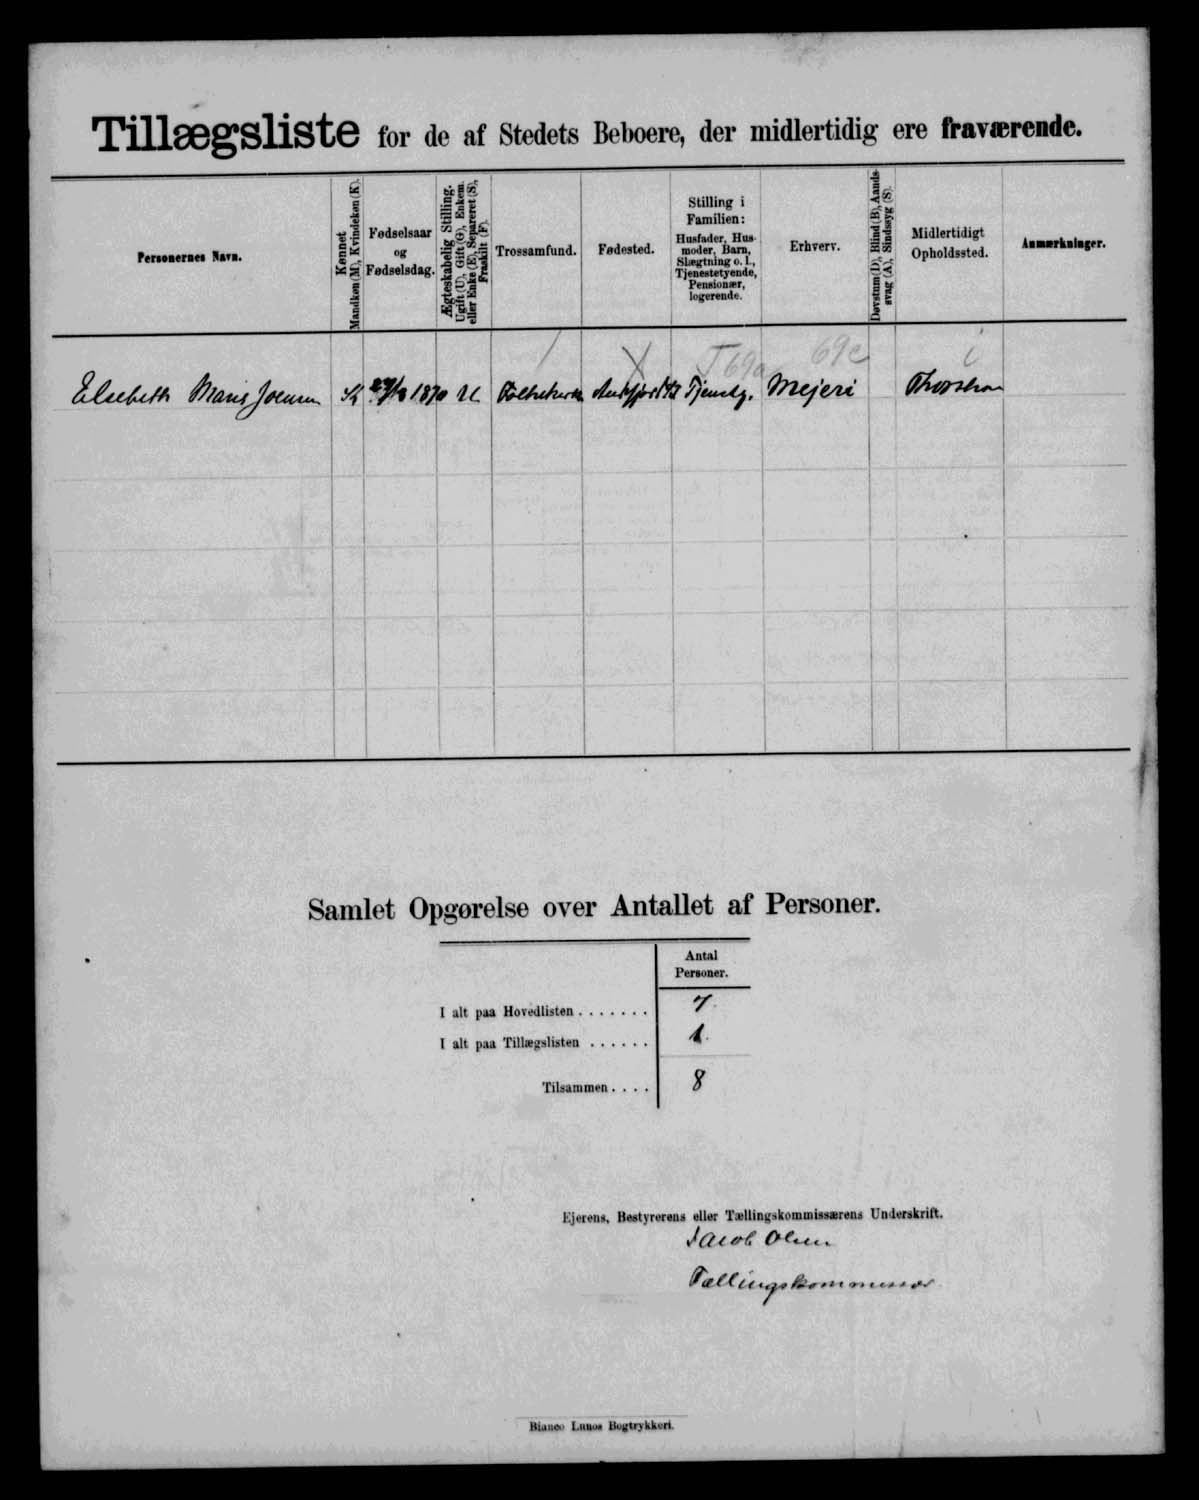 Tillægsliste for de af Stedets Beboere, der midlertidig ere fraværende.
Personernes Navn.
Kønnet
Mandkøn (M), Kvindekøn (K).
Fødselsaar
og
Fødselsdag.
Ægteskabelig Stilling.
Ugift (U), Gift (G), Enkem.
eller Enke (E), Separeret (S),
Fraskilt (F).
Trossamfund.
Fødested.
Stilling i
Familien:
Husfader, Hus-
moder, Barn,
Slægtning o. l.,
Tjenestetyende,
Pensionær,
logerende.
Erhverv.
Døvstum (D), Blind (B), Aands-
svag (A), Sindssyg (S).
Midlertidigt
Opholdssted.
Anmærkninger.
T 69a
69c
i
Elsebeth Marie Joensen K 1870 U. Folkekirken Tjenstg. Mejeri Thorshavn
Samlet Opgørelse over Antallet af Personer.
Antal
Personer.
I alt paa Hovedlisten . . . . . . . 7.
I alt paa Tillægslisten . . . . . . 1.
Tilsammen . . . . 8
Ejerens, Bestyrerens eller Tællingskommissærens Underskrift.
Jacob Olsen
Tællingskommissær
Bianco Lunos Bogtrykkeri.